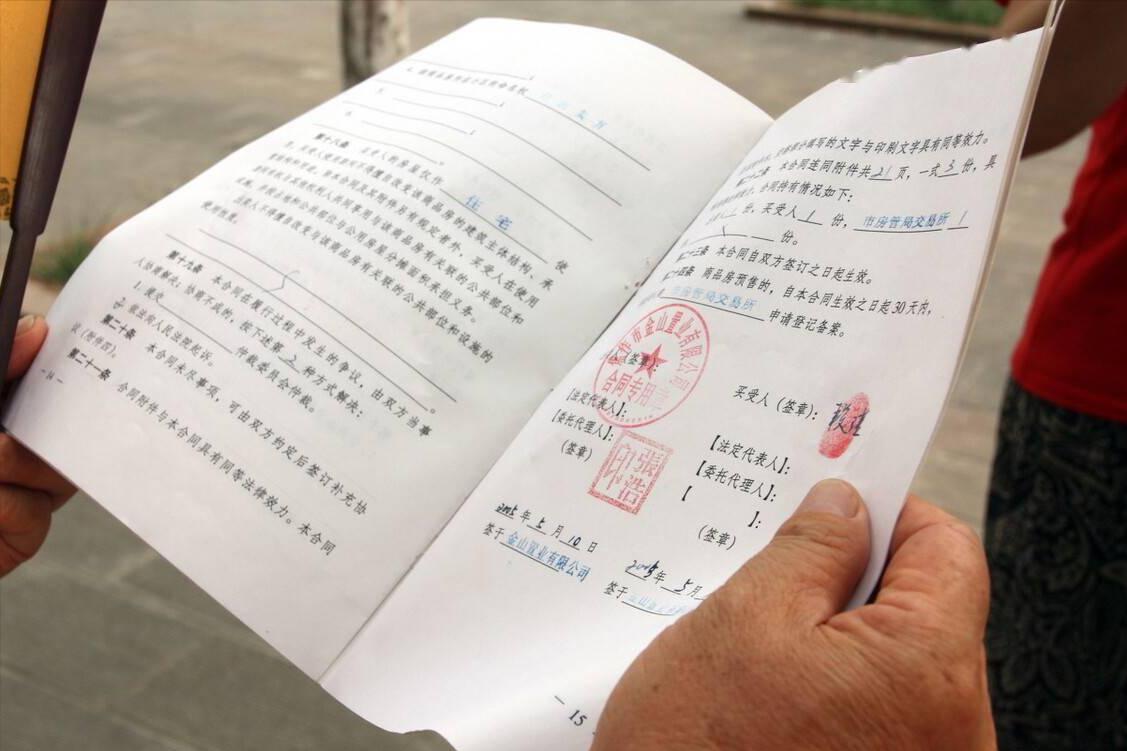 4.
5.
6.
第十八条 买受人的房屋仅作 住宅 使
用,买受人使用期间不得擅自改变该商品房的建筑主体结构、承
重结构和用途。除本合同及其附件另有规定者外,买受人在使用
期间有权与其他权利人共同享用与该商品房有关联的公共部位和
设施,并按占地和公共部位与公用房屋分摊面积承担义务。
出卖人不得擅自改变与该商品房有关联的公共部位和设施的
使用性质。
第十九条 本合同在履行过程中发生的争议,由双方当事
人协商解决;协商不成的,按下述第 2 种方式解决:
1. 提交 仲裁委员会仲裁。
2. 依法向人民法院起诉。
第二十条 本合同未尽事项,可由双方约定后签订补充协
议(附件四)。
第二十一条 合同附件与本合同具有同等法律效力。本合同
- 14 -
填写的文字与印刷文字具有同等效力。
第二十二条 本合同连同附件共 21 页,一式 3 份,具
效力,合同持有情况如下:
份,买受人 1 份, 市房管局交易所 1
份。
第二十三条 本合同自双方签订之日起生效。
第二十四条 商品房预售的,自本合同生效之日起30天内,
市房管局交易所 申请登记备案。
市金山置业有限公司
合同专用章
(签章):
买受人(签章):
【法定代表人】:
【委托代理人】:
(签章)
張浩印
【法定代表人】:
【委托代理人】:
【 】:
(签章)
2005 年 5 月 10 日
签于 金山置业有限公司
2005年 5 月
签于
- 15